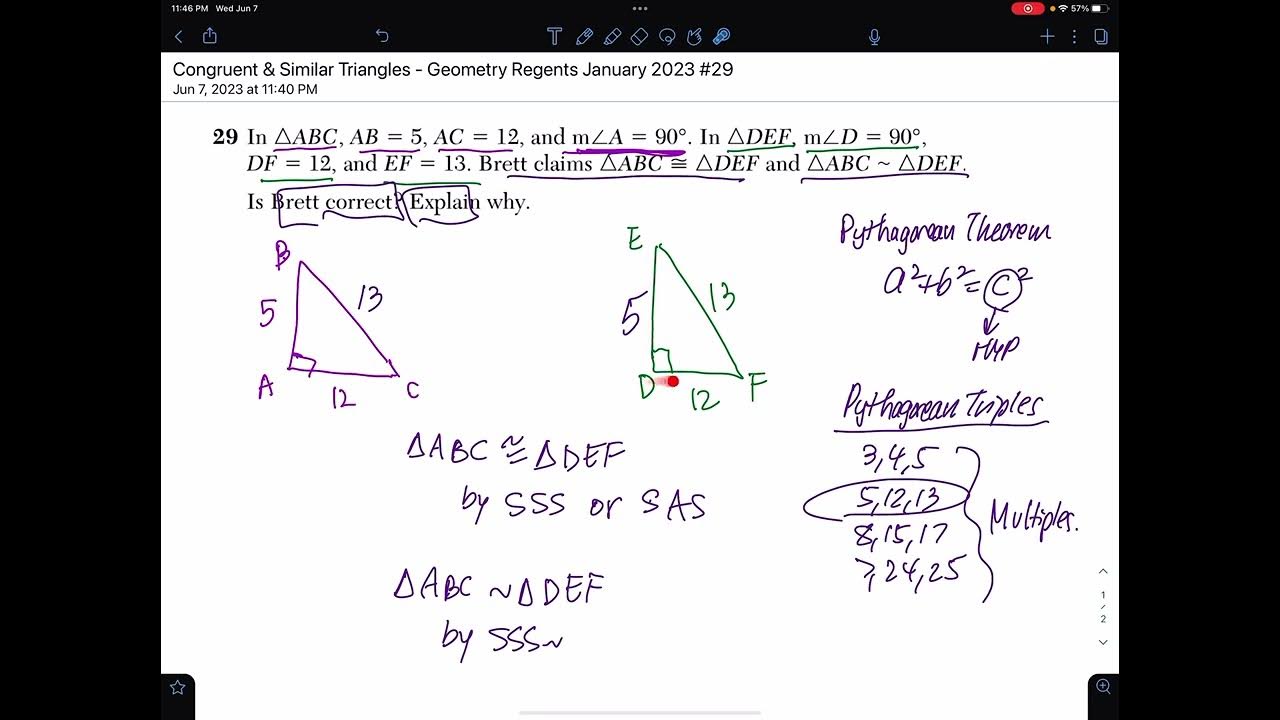 11:46 PM Wed Jun 7
57%
Congruent & Similar Triangles - Geometry Regents January 2023 #29
Jun 7, 2023 at 11:40 PM
29 In △ABC, AB = 5, AC = 12, and m∠A = 90°. In △DEF, m∠D = 90°,
DF = 12, and EF = 13. Brett claims △ABC ≅ △DEF and △ABC ~ △DEF.
Is Brett correct? Explain why.
B
5
13
A
12
C
E
5
13
D
12
F
Pythagorean Theorem
a²+b²=c²
HYP
Pythagorean Triples
3,4,5
5,12,13
8,15,17
7,24,25
Multiples.
△ABC ≅ △DEF
by SSS or SAS
△ABC ~ △DEF
by SSS~
1
/
2